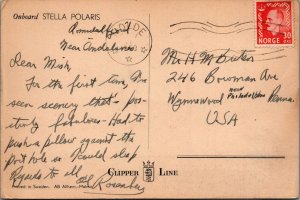 Onboard STELLA POLARIS
Romsdalfjord
Near Andalsnes
Dear Mish,
For the first time, I've
seen scenery that is pos-
itively fabulous - Had to
push a pillow against the
port hole so I could slap
Regards to all
Al Rosenberg
Printed in Sweden.
CLIPPER LINE
MOLDE
30
ØRE
NORGE
Mr H M Butler
246 Bowman Ave
Wynnewood Penna.
near Philadelphia
USA